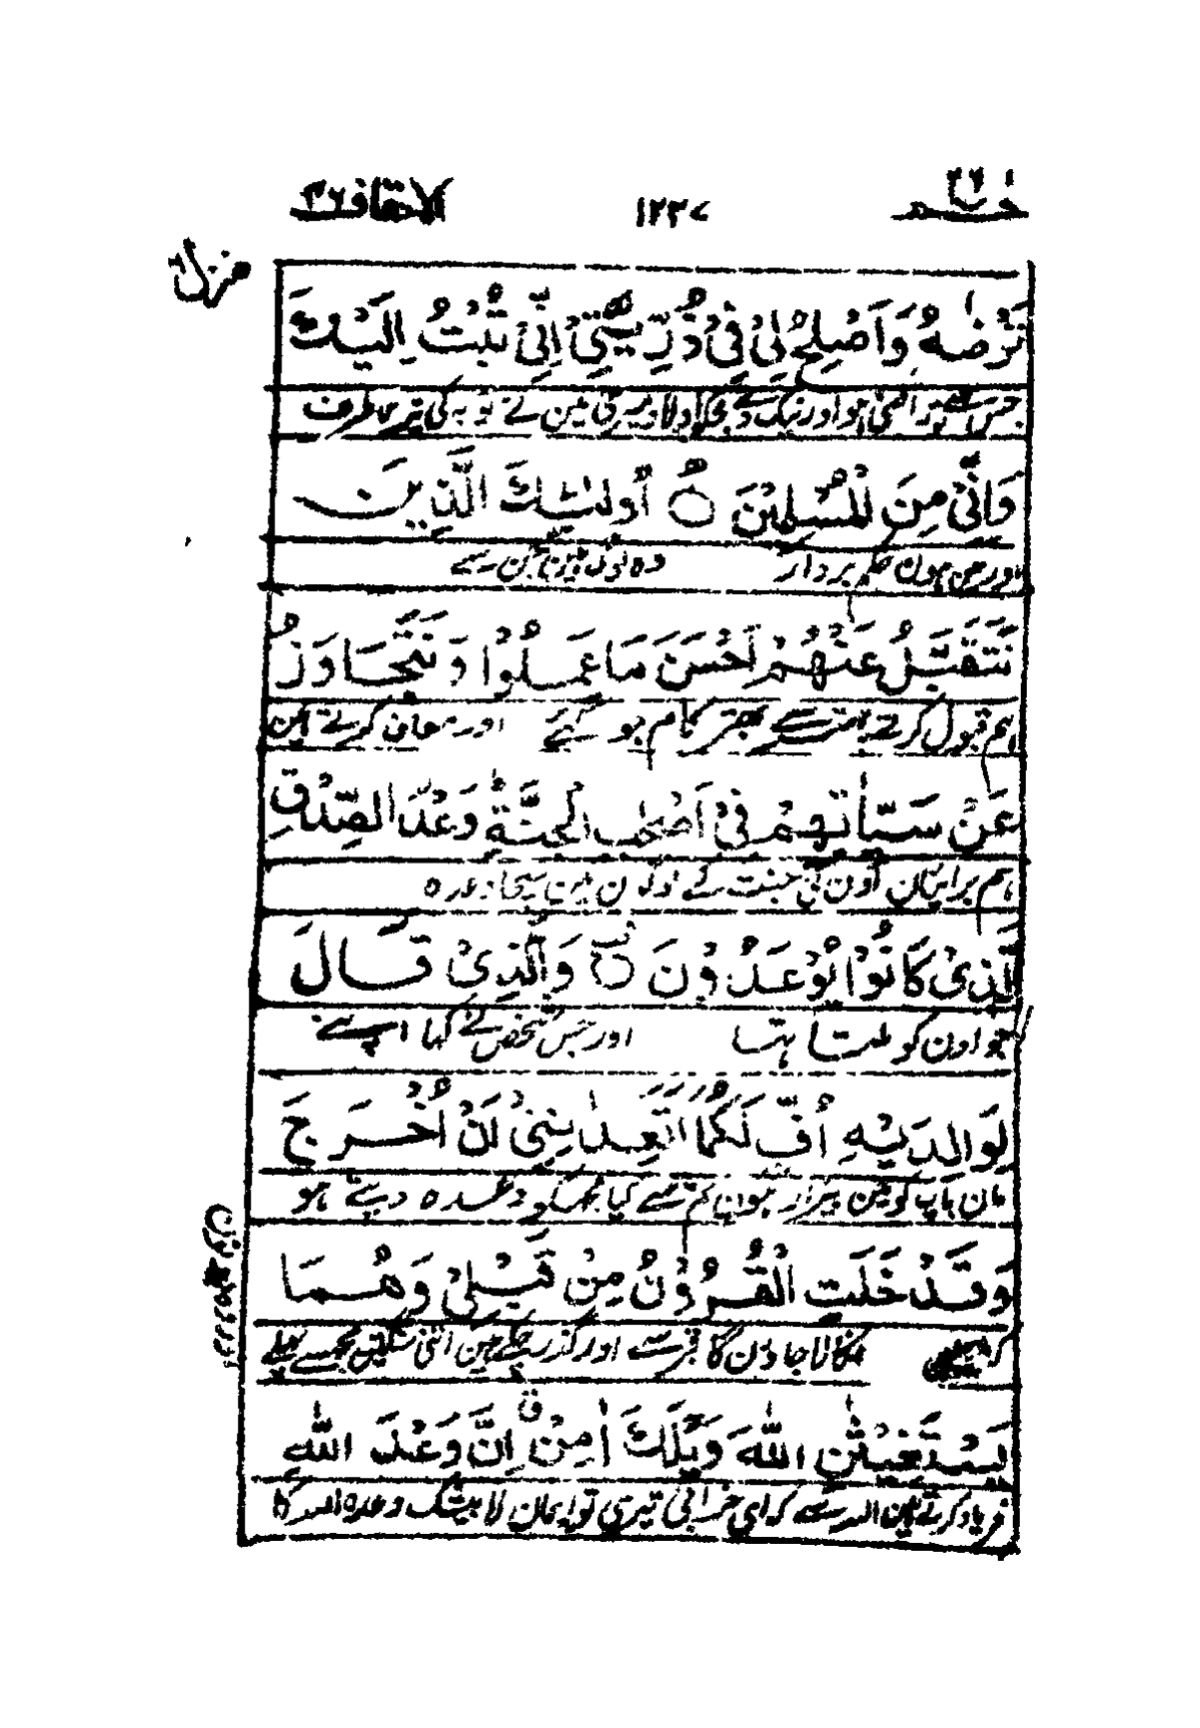 حٰم ٢٦
١٢٣٧
الاحقاف ٤٦
منزل ٦
تَرْضٰهُ وَاَصْلِحْ لِیْ فِیْ ذُرِّیَّتِیْ اِنِّیْ تُبْتُ اِلَیْكَ
جس سے تو راضی ہو اور نیک دے مجھکو اولاد میری مین نے توبہ کی تیری طرف
وَاِنِّیْ مِنَ الْمُسْلِمِیْنَ ○ اُولٰٓئِكَ الَّذِیْنَ
اور مین ہون حکم بردار وہ لوگ ہین جن سے
نَتَقَبَّلُ عَنْهُمْ اَحْسَنَ مَا عَمِلُوْا وَنَتَجَاوَزُ
ہم قبول کرتے بہتر سے بہتر کام جو کئے اور معاف کرتے ہین
عَنْ سَیِّاٰتِهِمْ فِیْ اَصْحٰبِ الْجَنَّةِ وَعْدَ الصِّدْقِ
ہم برائیان اون کی جنت کے لوگون مین سچا وعدہ
الَّذِیْ كَانُوْا یُوْعَدُوْنَ ○ وَالَّذِیْ قَالَ
جو اون کو ملتا تہا اور جس شخص نے کہا اپنے
لِوَالِدَیْهِ اُفٍّ لَّكُمَا اَتَعِدٰنِنِیْ اَنْ اُخْرَجَ
مان باپ کو مین بیزار ہون تم سے کیا مجھکو وعدہ دیتے ہو
وَقَدْ خَلَتِ الْقُرُوْنُ مِنْ قَبْلِیْ وَهُمَا
کہ نکالا جاؤن گا قبر سے اور گذر چکے ہین اتنی سنگتین مجھسے پہلے
یَسْتَغِیْثٰنِ اللّٰهَ وَیْلَكَ اٰمِنْ اِنَّ وَعْدَ اللّٰهِ
فریاد کرتے ہین اللہ سے کہ ای خرابی تیری تو ایمان لا بیشک وعدہ اللہ کا